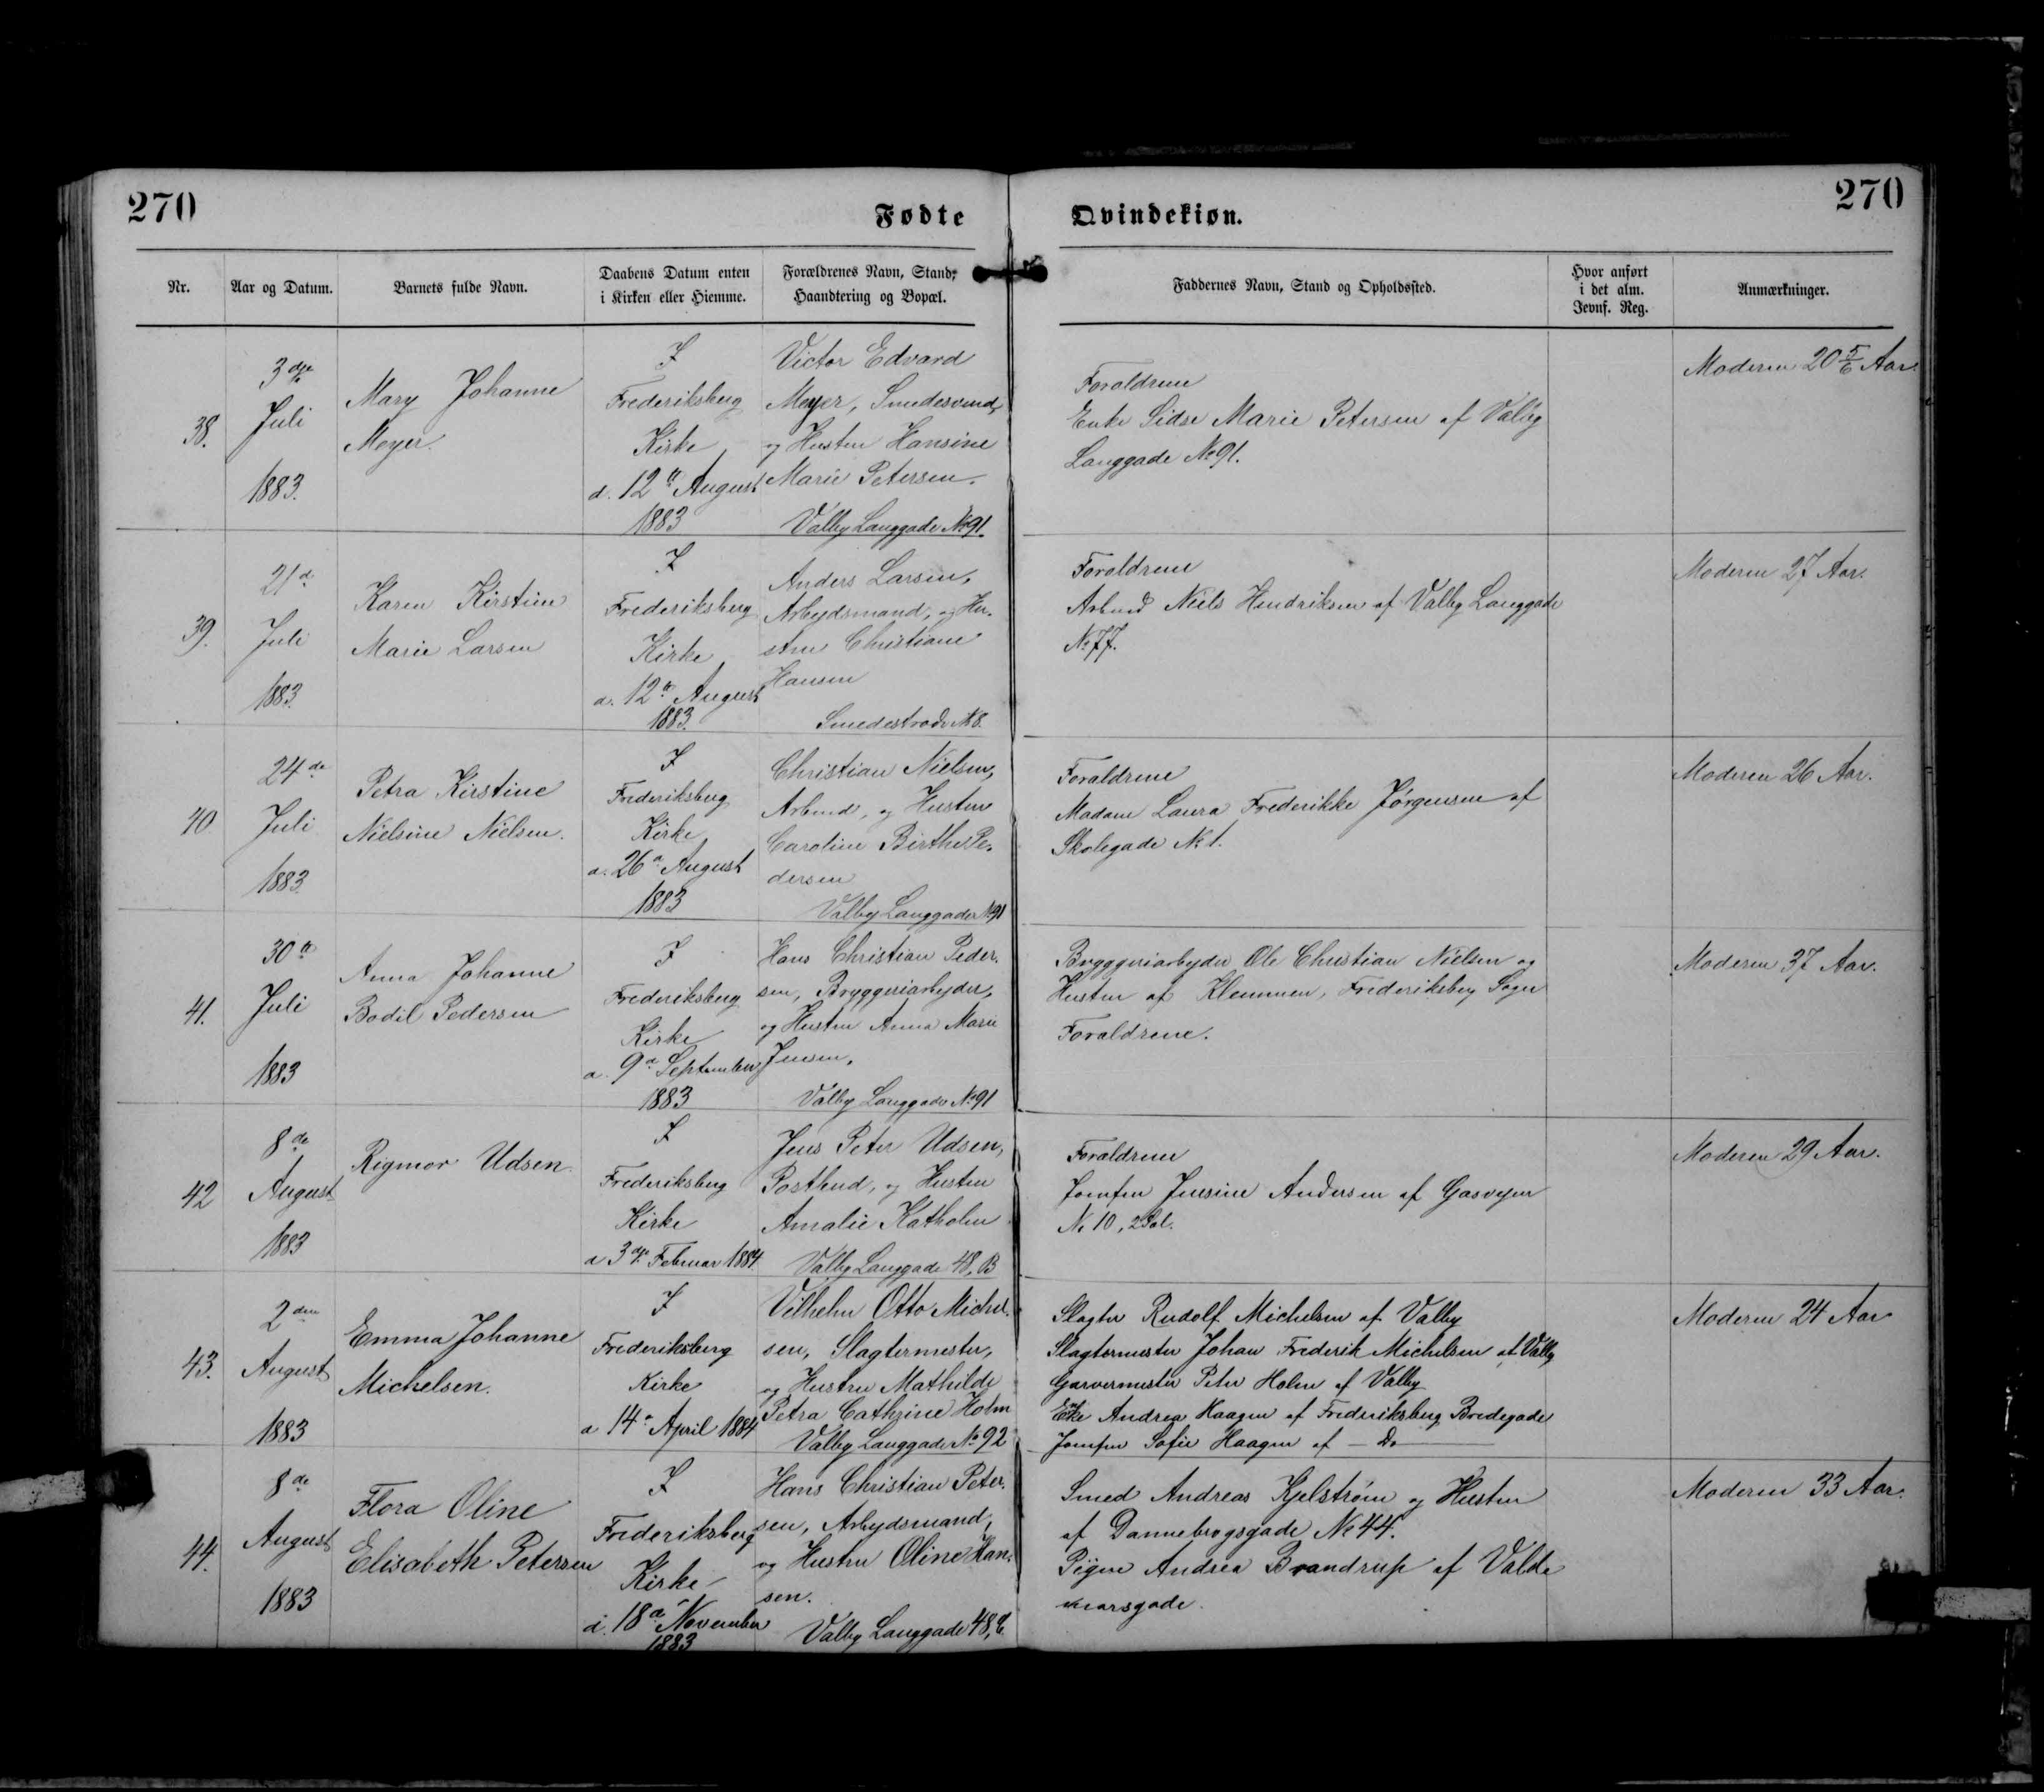 270
Fødte
Qvindekiøn.
270
Nr.
Aar og Datum.
Barnets fulde Navn.
Daabens Datum enten
i Kirken eller Hiemme.
Forældrenes Navn, Stand,
Haandtering og Bopæl.
Faddernes Navn, Stand og Opholdssted.
Hvor anført
i det alm.
Jevnf. Reg.
Anmærkninger.
38.
3die
Juli
1883.
Mary Johanne
Meyer.
I
Frederiksberg
Kirke
d. 12te August
1883
Victor Edvard
Meyer, Smedesvend,
og Hustru Hansine
Marie Petersen.
Valby Langgade No 91.
Forældrene
Enke Sidse Marie Petersen af Valby
Langgade No 91.
Moderen 20 5/6 Aar.
39.
21d
Juli
1883.
Karen Kirstine
Marie Larsen
I
Frederiksberg
Kirke
d. 12te August
1883.
Anders Larsen,
Arbejdsmand, og Hu-
stru Christiane
Hansen
Smedestræde No 8.
Forældrene
Arbmd Niels Hendriksen af Valby Langgade
No 77.
Moderen 27 Aar.
40
24de
Juli
1883.
Petra Kirstine
Nielsine Nielsen.
I
Frederiksberg
Kirke
d. 26d August
1883
Christian Nielsen,
Arbmd, og Hustru
Caroline Birthe Pe-
dersen
Valby Langgade No 91
Forældrene
Madam Laura Frederikke Jørgensen af
Skolegade No 1.
Moderen 26 Aar.
41.
30te
Juli
1883
Anna Johanne
Bodil Pedersen
I
Frederiksberg
Kirke
d. 9d September
1883
Hans Christian Peder-
sen, Bryggeriarbejder,
og Hustru Anna Marie
Jensen,
Valby Langgade No 91
Bryggeriarbejder Ole Christian Nielsen og
Hustru af Flemmen, Frederiksberg Sogn
Forældrene.
Moderen 37 Aar.
42
8de
August
1883
Rigmor Udsen.
I
Frederiksberg
Kirke
d 3die Februar 1884.
Jens Peter Udsen,
Postbud, og Hustru
Amalie Katholm
Valby Langgade 48, B
Forældrene
Jomfru Jensine Andersen af Gasvejen
No 10, 2 Sal.
Moderen 29 Aar.
43.
2den
August
1883
Emma Johanne
Michelsen.
I
Frederiksberg
Kirke
d 14d April 1884
Vilhelm Otto Michel-
sen, Slagtermester,
og Hustru Mathilde
Petra Cathrine Holm
Valby Langgade No 92
Slagter Rudolf Michelsen af Valby
Slagtermester Johan Frederik Michelsen af Valby
Garvermester Peter Holm af Valby
Enke Andrea Haagen af Frederiksberg Bredegade
Jomfru Sofie Haagen af — Do —
Moderen 24 Aar
44.
8de
August
1883
Flora Oline
Elisabeth Petersen
I
Frederiksberg
Kirke,
d. 18d November
1883
Hans Christian Peter-
sen, Arbejdsmand,
og Hustru Oline Han-
sen.
Valby Langgade 48,
Smed Andreas Kjelstrøm og Hustru
af Dannebrogsgade No 44.
Pigen Andrea Brandrup af Valde
marsgade.
Moderen 33 Aar.